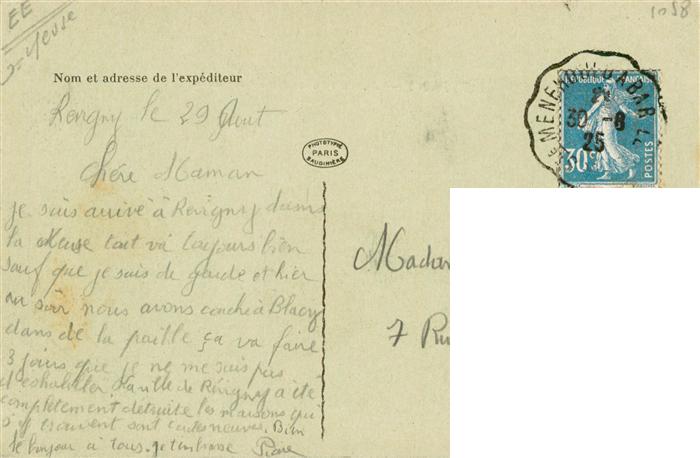 EE
Meuse
1058
Nom et adresse de l'expéditeur
Revigny le 29 Aout
PHOTOTYPIE
PARIS
BAUDINIÈRE
Chére Maman
je suis arrivé à Revigny dans
la Meuse tout va toujours bien
sauf que je suis de garde et hier
au soir nous avons couché à Blacy
dans de la paille ça va faire
3 jours que je ne me suis pas
deshabiller la ville de Révigny a été
completement détruite les maisons qui
s'y trouvent sont toutes neuves. Bien
le bonjour à tous. je t'embrasse Pierre
BAR
30 -8
25
FRANÇAISE
30c
POSTES
7 Ru